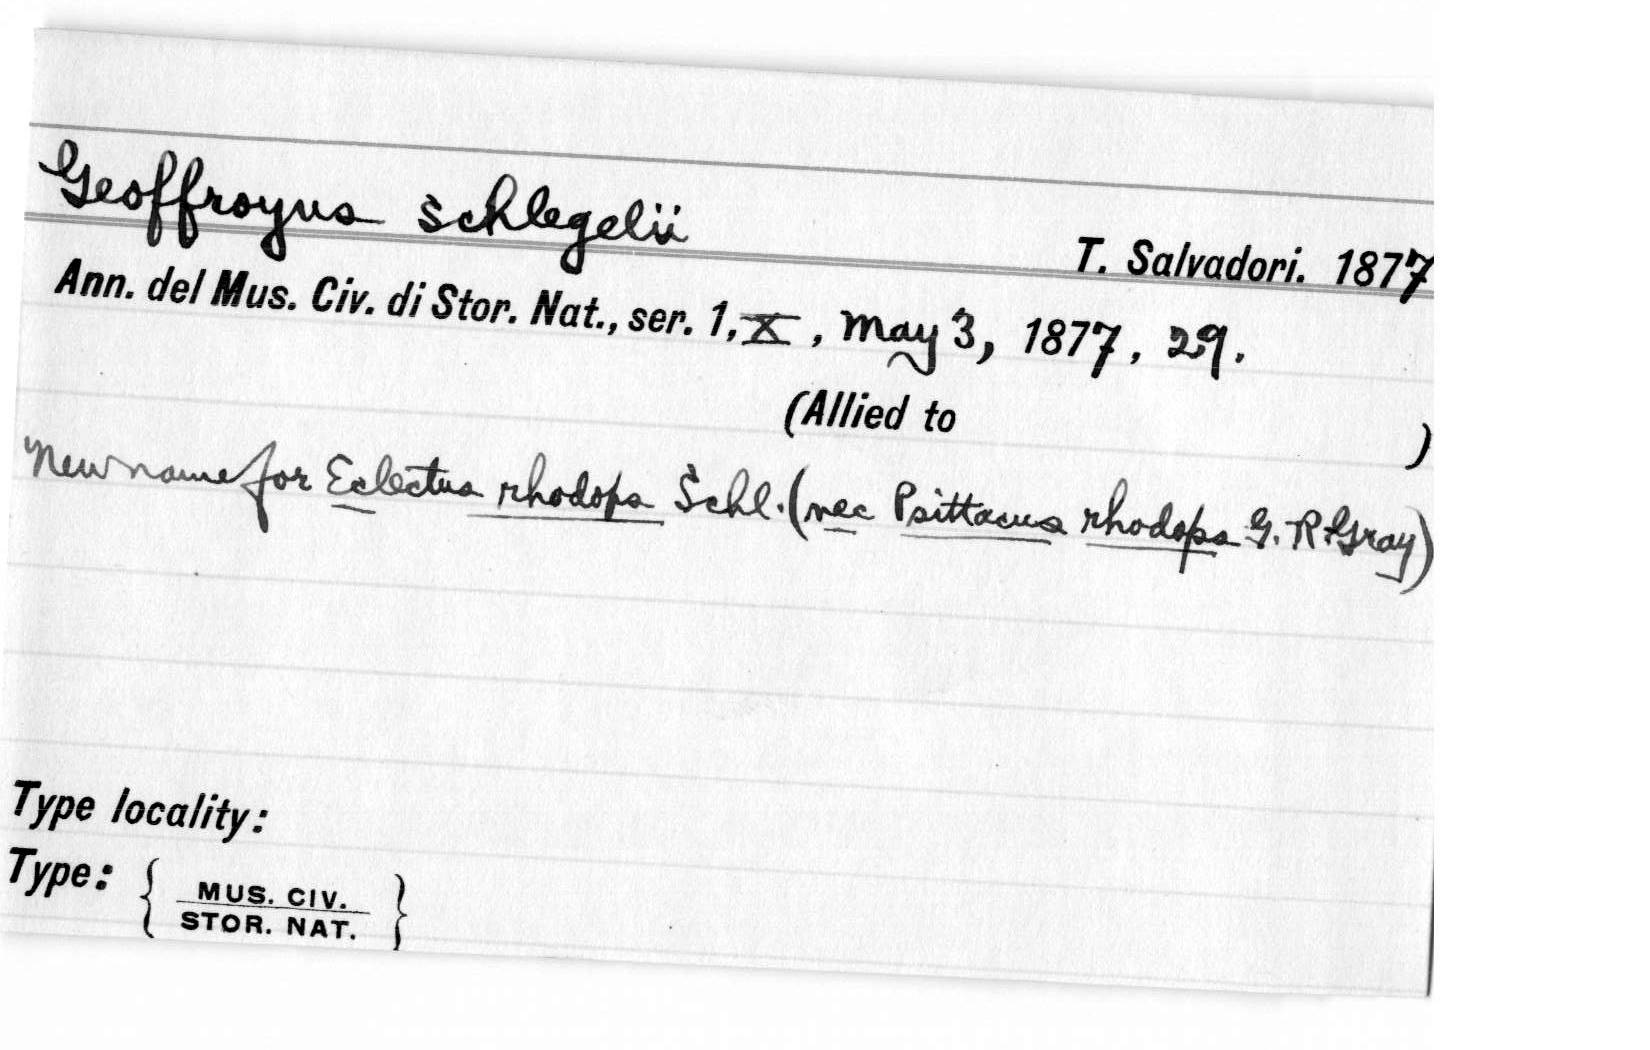 Geoffroyus schlegelii
T. Salvadori. 1877
Ann. del Mus. Civ. di Stor. Nat., ser. 1, X, May 3, 1877, 29.
(Allied to )
New name for Eclectus rhodops Schl. (nec Psittacus rhodops G. R. Gray)
Type locality:
Type: { MUS. CIV.
STOR. NAT. }